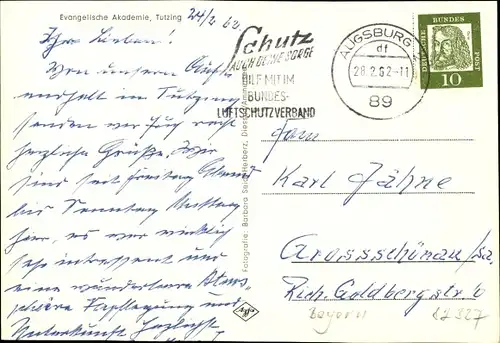 Evangelische Akademie, Tutzing
24/2 62
Ihr Lieben!
Von unserem
enthalt in Tutzing
senden wir Euch recht
herzliche Grüße. Wir
sind seit Freitag Abend
bis Sonntag Mittag
hier, es war wirklich
sehr interessant und
eine wunderbare Atmos
phäre. Verpflegung und
Unterkunft herzlichst
Fotografie: Barbara Herberz,
Schutz
AUCH DEINE SORGE
HILF MIT IM
BUNDES-
LUFTSCHUTZVERBAND
AUGSBURG
df
28.2.62-11
89
DEUTSCHE BUNDES POST
10
Karl Jähne
Grossschönau/Sa.
Rich. Goldbergstr. 6
Bayern